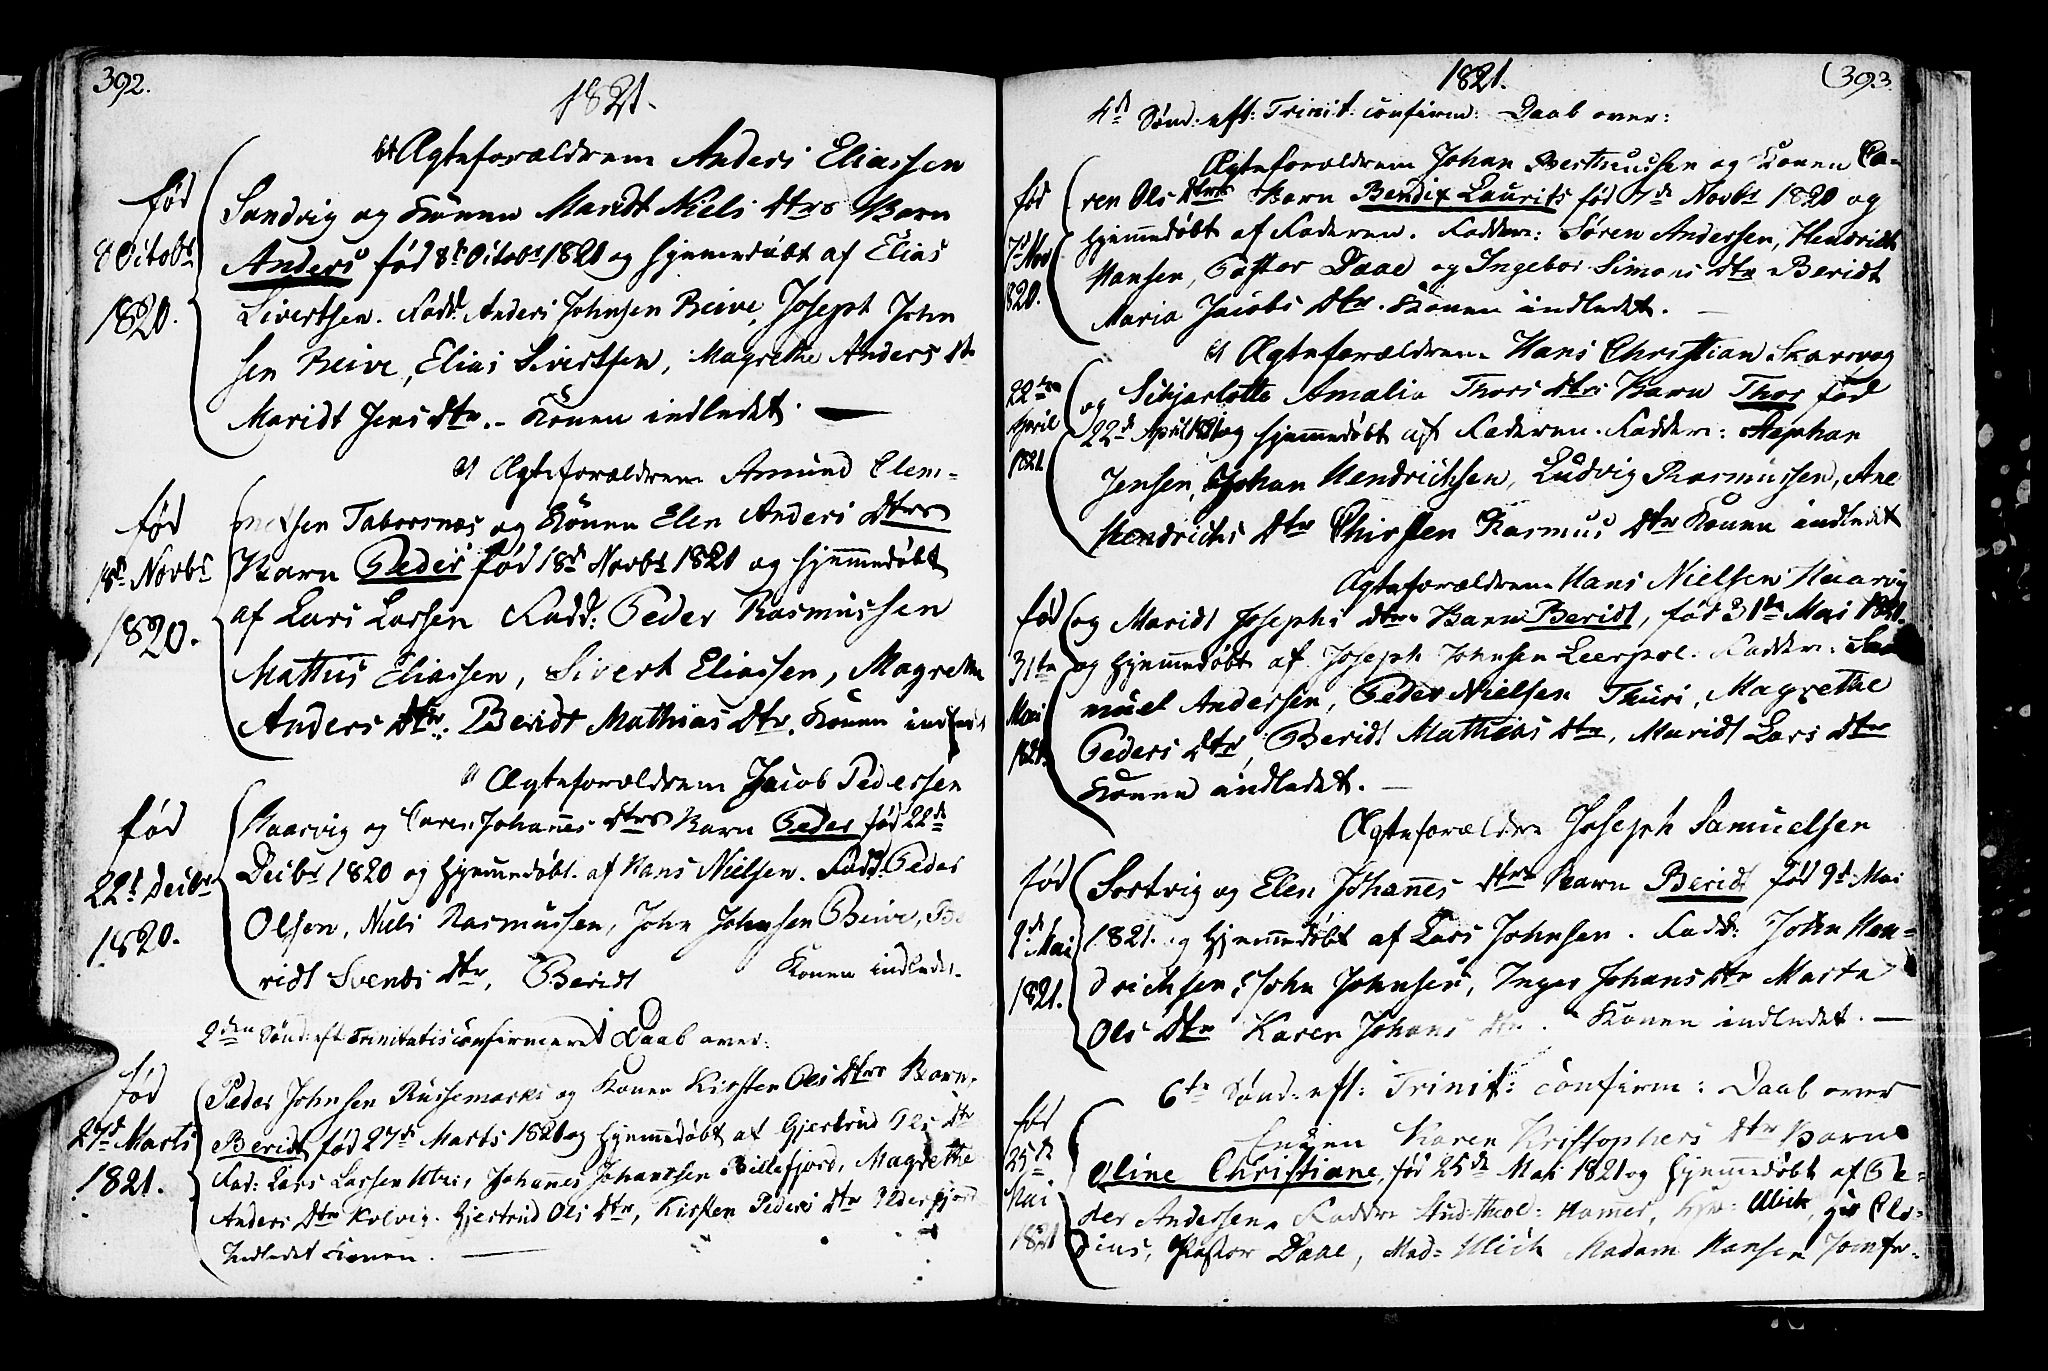 392.
1821.
Ægteforældrene Anders Eliassen
Sandvig og Konen Maridt Niels Dtrs Barn
Andersød 8de Octobr 1821 og hjemmedøbt af Elias
Sivertsen. Fadd. Anders Johnsen Reive, Joseph John
sen Reive, Elias Sivertsen, Magrethe Anders Dtr
Maridt Jens Dtr. - Konen indledet.
født
8 Octobr
1820.
Ægteforældrene Amund Clem-
metsen Taborsnæs og Konen Elen Anders Dtrs
Barn Peder født 18d Novbr 1821 og hjemmedøbt
af Lars Larsen Fadd: Peder Rasmussen
Mathis Eliassen, Sivert Eliassen, Magrethe
Anders Dtr: Beridt Mathias Dtr. Konen indledt
født
18d Novbr
1820.
Ægteforældrene Jacob Pedersen
Haarvig og Caren Johannes Dtrs Barn Peder født 22de
Decbr 1820 og hjemmedøbt af Hans Nielsen. Fadd. Peder
Olsen, Niels Rasmussen, John Johnsen Reive, Be
ridt Svends Dtr, Beridt Konen indledet.
født
22d Decbr
1820.
2den Sønd: eft: Trinitatis confirmeret Daab over:
Peder Johnsen Russemarks og Konen Kirsten Ols Dtrs Barn
Beridt født 27de Marts 1821 og hjemmedøbt af Gjertrud Ols Dtr
Fad: Lars Larsen, Johannes Johannsen Billefjord, Magrethe
Anders Dtr Kolvig. Gjertrud Ols Dtr, Kirsten Peders Dtr
Indledet Konen.
født
27d Marts
1821.
1821.
393.
4d Sønd: eft: Trinit: confirm: Daab over:
Ægteforældrene Johan og Konen Ca-
ren Ols Dtrs Barn Bendix Laurits født 7de Novbr 1820 og
hjemmedøbt af Faderen. Faddere: Søren Andersen, Hendrich
Hansen, Pastor Daae og Ingebor Simons Dtr Beridt
Maria Jacobs Dtr. Konen indledet.
født
7d Nov
1820.
Ægteforældrene Hans Christian Skarsvog
og Amalia Thors Dtrs Barn Thor født
22d April 1821 og hjemmedøbt af Faderen. Faddere: Stephan
Jensen, Johan Hendrichsen, Ludvig Rasmussen, Ane
Hendrichs Dtr Chirsten Rasmus Dtr Konen indledet
22den
April
1821
Ægteforældrene Hans Nielsen Haarvig
og Maridt Josephs Dtrs Barn Beridt, født 31te Mai 1821.
og hjemmedøbt af Joseph Johnsen Leerpol. Faddere: Sa
muel Andersen, Peder Nielsen Thuri, Magrethe
Peders Dtr, Beridt Mathias Dtr, Maridt Lars Dtr
Konen indledet.
født
31te
Mai
1821.
Ægteforældre Joseph Samuelsen
Sortvig og Elen Johannes Dtrs Barn Beridt født 9d Mai
1821. og hjemmedøbt af Lars Johnsen. Fadd: John Hen-
drichsen, John Johnsen, Inger Johans Dtr Marta
Ols Dtr Karen Johans Dtr. Konen indledet.
født
9d Mai
1821.
6te Sønd: eft: Trinit: confirm: Daab over
Karen Kristophers Dtr Barn
Oline Christiane, født 25de Mai 1821 og hjemmedøbt af Pe-
der Andersen. Faddere Stud: theol: Hamer, Ulich, Clo-
dius, Pastor Daae, Mad: Ulich Madam Hansen Jomfr.
født
25de
Mai
1821